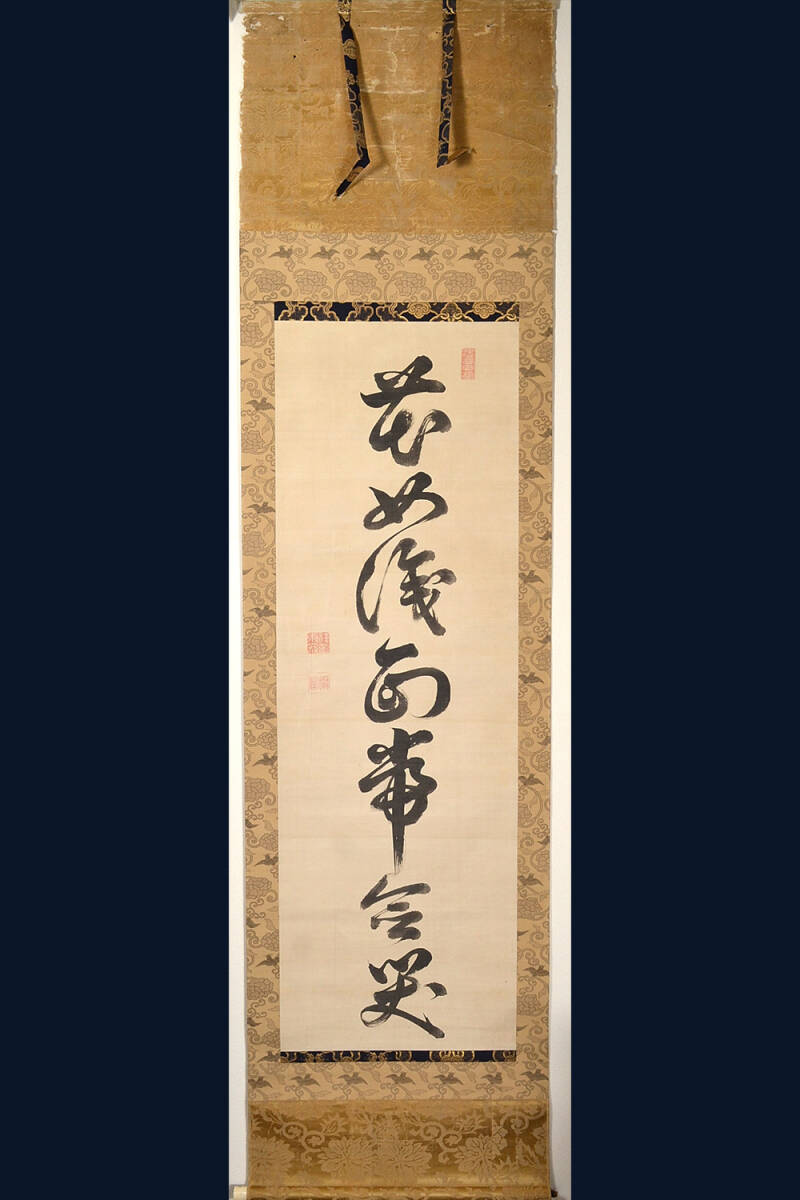 花如識面常含笑